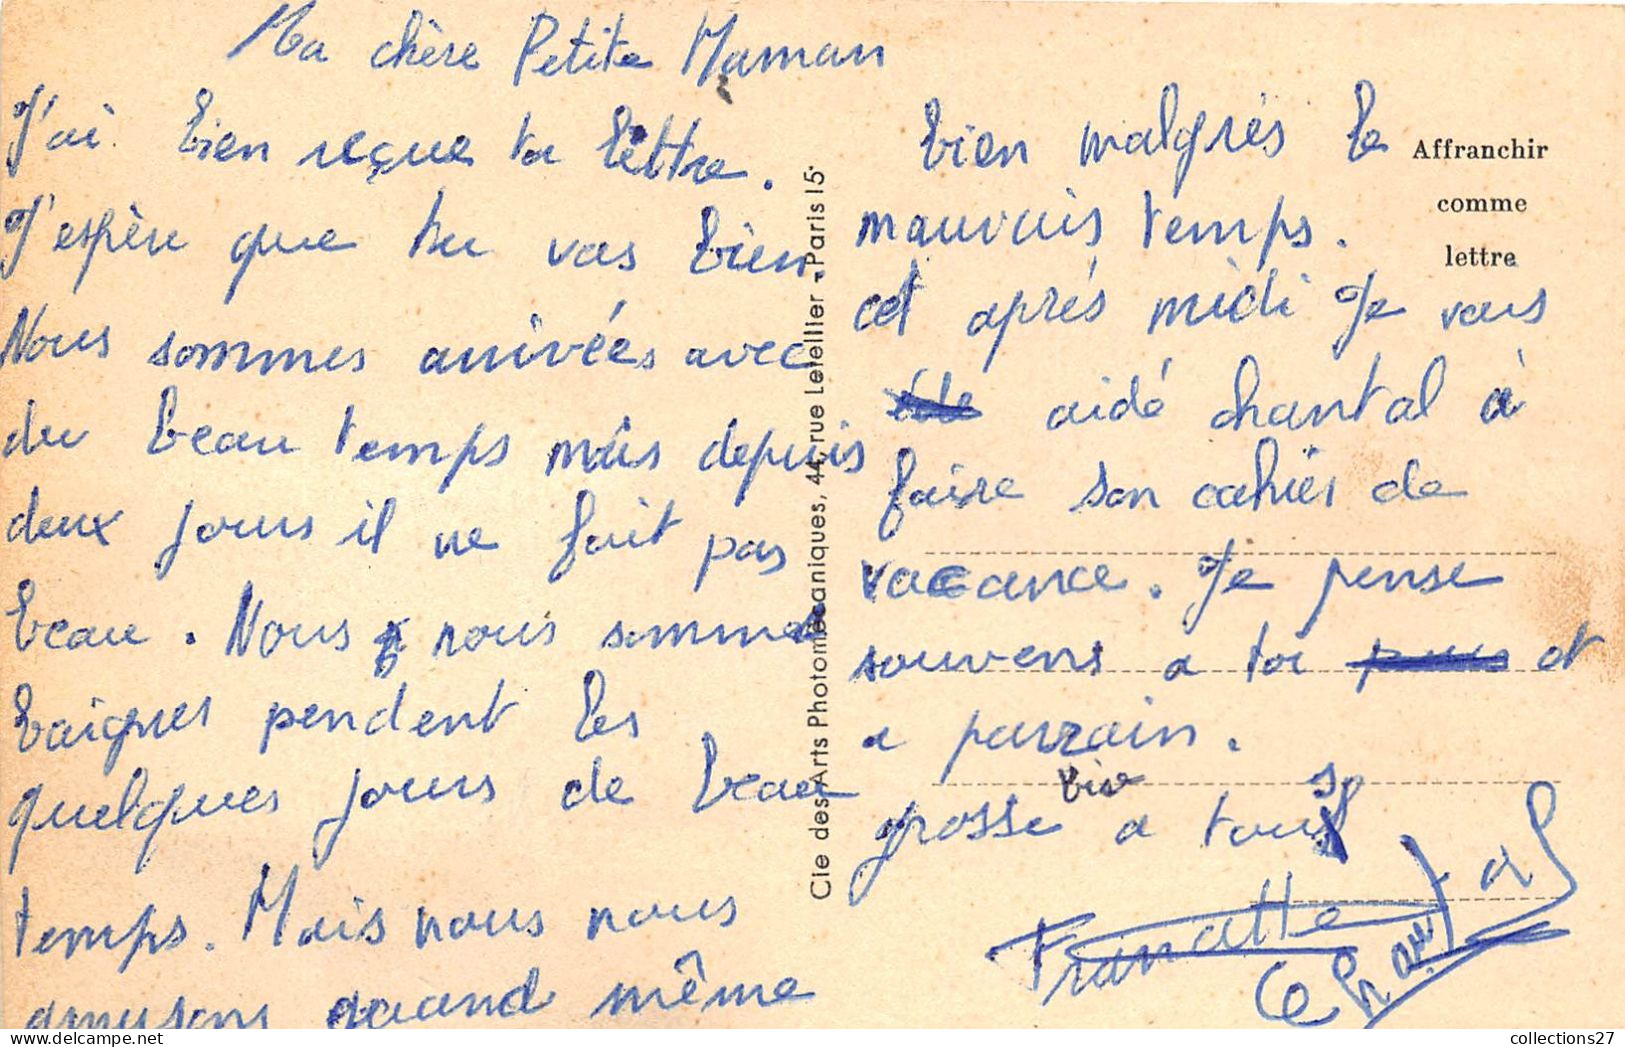 Ma chère Petite Maman
J'ai bien reçue ta lettre.
J'espère que tu vas bien.
Nous sommes arrivées avec
du beau temps mais depuis
deux jours il ne fait pas
beau. Nous nous somme
baignes pendent les
quelques jours de beau
temps. Mais nous nous
amusons quand même
Cie des Arts Photomécaniques, 44, rue Letellier - Paris 15e
Affranchir
comme
lettre
bien malgrés le
mauvais temps.
cet aprés midi Je vais
aidé chantal à
faire son cahier de
vacance. Je pense
souvens a toi et
a parrain.
grosse bise a tous
Chantal
collections27